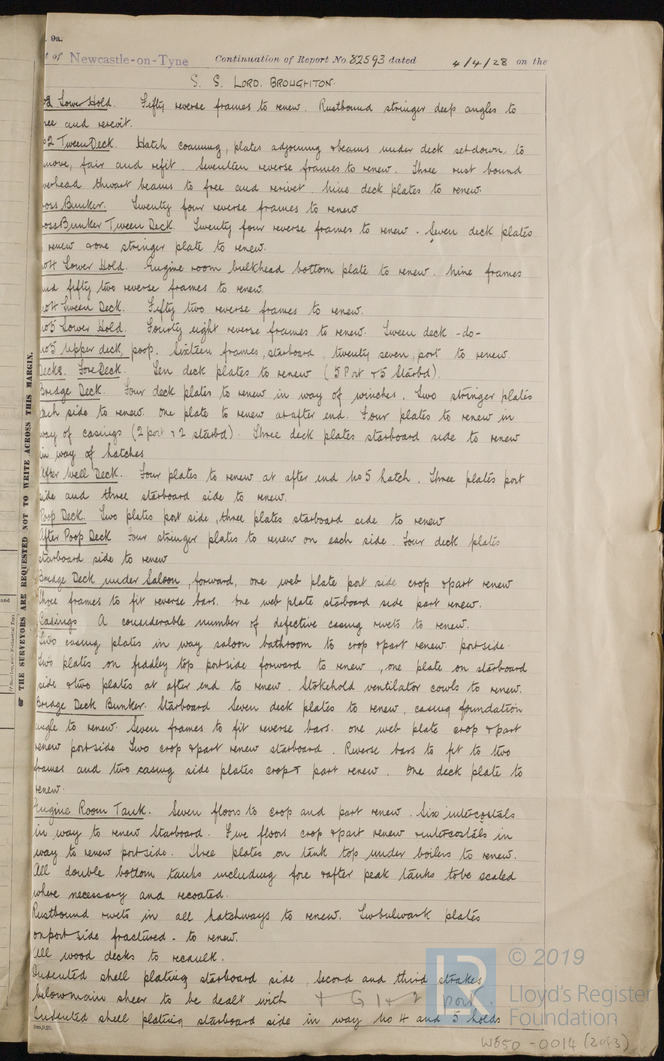 9a.
t of Newcastle-on-Tyne Continuation of Report No. 82593 dated 4/4/28 on the
S. S. LORD BROUGHTON.
2 Lower Hold. Fifty reverse frames to renew. Rustbound stringer deep angles to
ree and rerivit.
o2 Tween Deck. Hatch coaming, plates adjoining & beams under deck set down to
move, fair and refit. Seventeen reverse frames to renew. Three rust bound
verhead thwart beams to free and rerivet. Nine deck plates to renew
ross Bunker. Twenty four reverse frames to renew
ross Bunker Tween Deck. Twenty four reverse frames to renew. Seven deck plates
renew & one stringer plate to renew.
o4 Lower Hold. Engine room bulkhead bottom plate to renew. Nine frames
nd fifty two reverse frames to renew.
o4 Tween Deck. Fifty two reverse frames to renew.
o5 Lower Hold. Fourty eight reverse frames to renew. Tween deck -do-
o5 upper deck, poop. Sixteen frames, starboard, twenty seven, port to renew
ecks. Fore Deck. Ten deck plates to renew (5 Port & 5 Starbd).
Bridge Deck. Four deck plates to renew in way of winches. Two stringer plates
ach side to renew. One plate to renew at after end. Four plates to renew in
way of casings (2 port & 2 starbd). Three deck plates starboard side to renew
in way of hatches
After Well Deck. Four plates to renew at after end No 5 hatch. Three plates port
side and three starboard side to renew.
Poop Deck. Two plates port side, three plates starboard side to renew
After Poop Deck Four stringer plates to renew on each side. Four deck plates
starboard side to renew
Bridge Deck under Saloon, forward, one web plate port side crop & part renew
three frames to fit reverse bars. One web plate starboard side part renew.
Casings A considerable number of defective casing rivets to renew.
Two casing plates in way saloon bathroom to crop & part renew portside.
Two plates on feddley top portside forward to renew, one plate on starboard
side & two plates at after end to renew. Stokehold ventilator cowls to renew.
Bridge Deck Bunker. Starboard Seven deck plates to renew, casing foundation
angle to renew. Seven frames to fit reverse bars. One web plate crop & part
renew portside Two crop & part renew starboard. Reverse bars to fit to two
frames and two casing side plates crop & part renew. One deck plate to
renew.
Engine Room Tank. Seven floors to crop and part renew. Six intercostals
in way to renew Starboard. Five floors crop & part renew & intercostals in
way to renew portside. Three plates on tank top under boilers to renew.
All double bottom tanks including fore & after peak tanks to be scaled
where necessary and recoated.
Rustbound rivets in all hatchways to renew. Two bulwark plates
on port side fractured - to renew.
All wood decks to recaulk.
Indented shell plating starboard side, second and third strakes
below main sheer to be dealt with + G 1 + 2 port.
Indented shell plating starboard side in way No 4 and 5 holds
THE SURVEYORS ARE REQUESTED NOT TO WRITE ACROSS THIS MARGIN.
© 2019
LR
Lloyd's Register
Foundation
W850-0014 (2093)